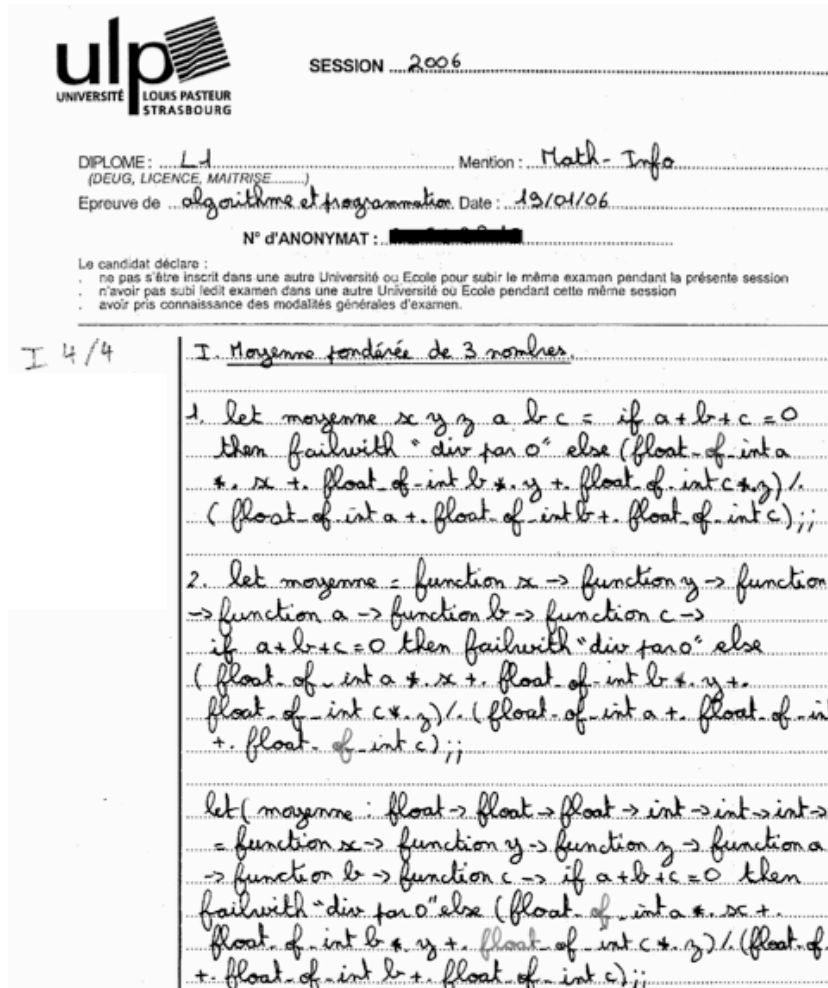 ulp
UNIVERSITÉ LOUIS PASTEUR
STRASBOURG
SESSION 2006
DIPLOME : L1 Mention : Math-Info
(DEUG, LICENCE, MAITRISE.........)
Epreuve de algorithme et programmation Date : 19/01/06
N° d'ANONYMAT :
Le candidat déclare :
. ne pas s'être inscrit dans une autre Université ou Ecole pour subir le même examen pendant la présente session
. n'avoir pas subi ledit examen dans une autre Université ou Ecole pendant cette même session
. avoir pris connaissance des modalités générales d'examen.
I 4/4
I. Moyenne pondérée de 3 nombres.
1. let moyenne x y z a b c = if a+b+c=0
then failwith "div par 0" else (float_of_int a
*. x +. float_of_int b *. y +. float_of_int c *. z) /.
(float_of_int a +. float_of_int b +. float_of_int c);;
2. let moyenne = function x -> function y -> function
-> function a -> function b -> function c ->
if a+b+c=0 then failwith "div par 0" else
(float_of_int a *. x +. float_of_int b *. y +.
float_of_int c *. z) /. (float_of_int a +. float_of_in
+. float_of_int c);;
let (moyenne : float -> float -> float -> int -> int -> int ->
= function x -> function y -> function z -> function a
-> function b -> function c -> if a+b+c=0 then
failwith "div par 0" else (float_of_int a *. x +.
float_of_int b *. y +. float_of_int c *. z) /. (float_of_
+. float_of_int b +. float_of_int c);;